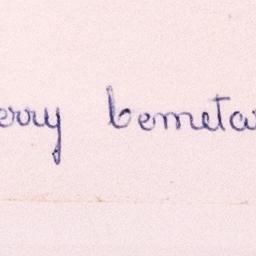 erry bemeta